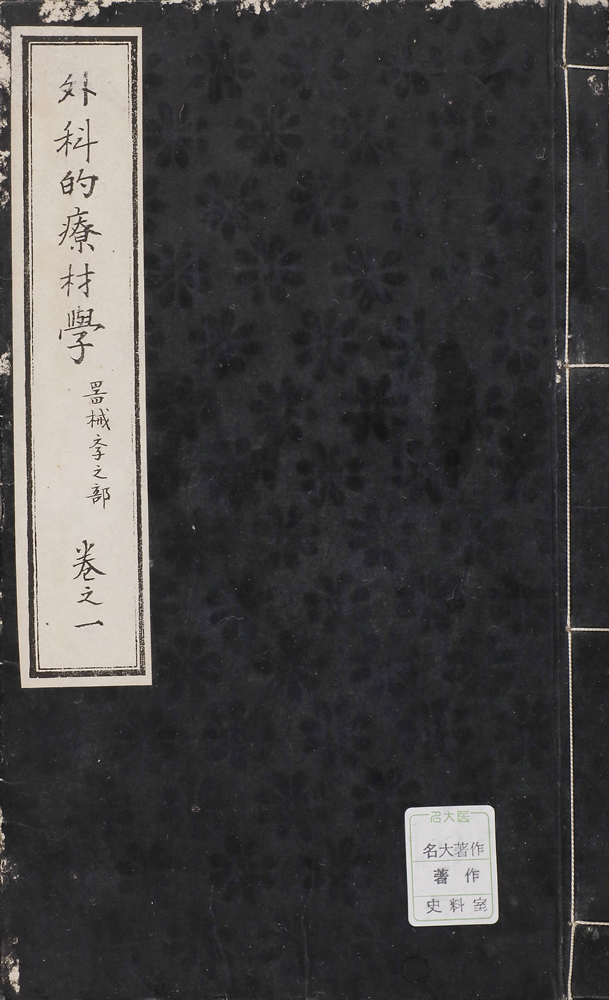 外科的療材學
器械学之部
卷之一
名大医
名大著作
著作
史料室